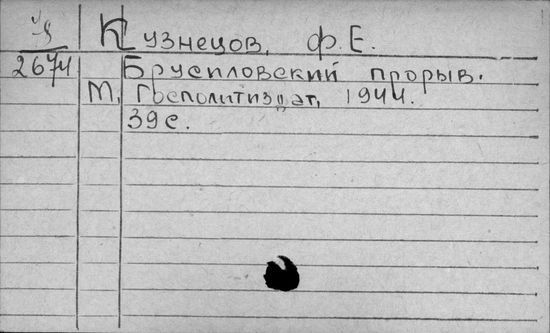 Кузнецов, Ф.Е.
2674
Брусиловский прорыв.
М, Госполитиздат, 1944.
39с.